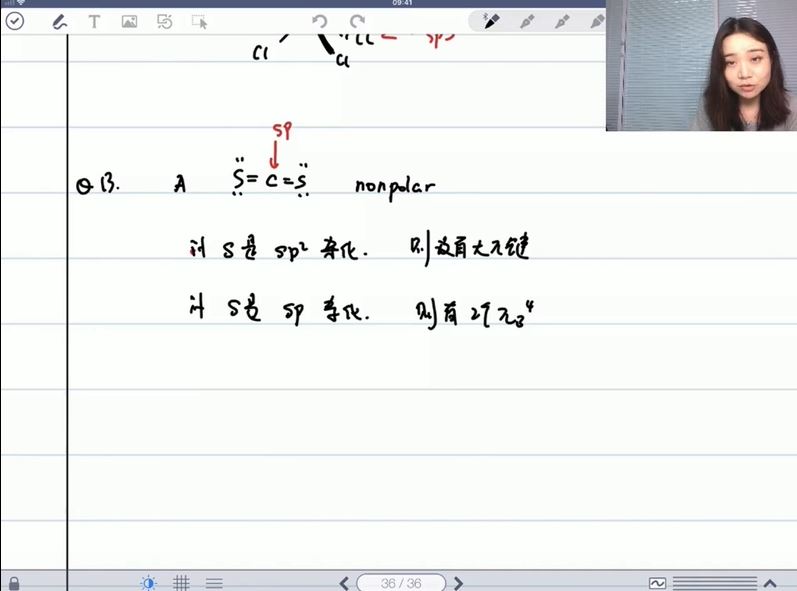 09:41
Cl
Cl
sp
Q 13. A S=C=S nonpolar
S是 sp² 杂化. 则没有大π键
S是 sp 杂化. 则有 2个π₃⁴
36 / 36